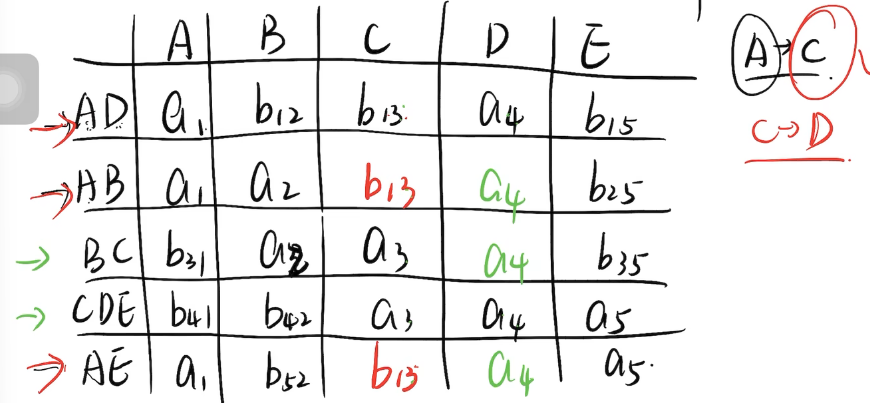 A B C D E A→C
AD a1 b12 b13 a4 b15 C→D
AB a1 a2 b13 a4 b25
BC b31 a2 a3 a4 b35
CDE b41 b42 a3 a4 a5
AE a1 b52 b13 a4 a5